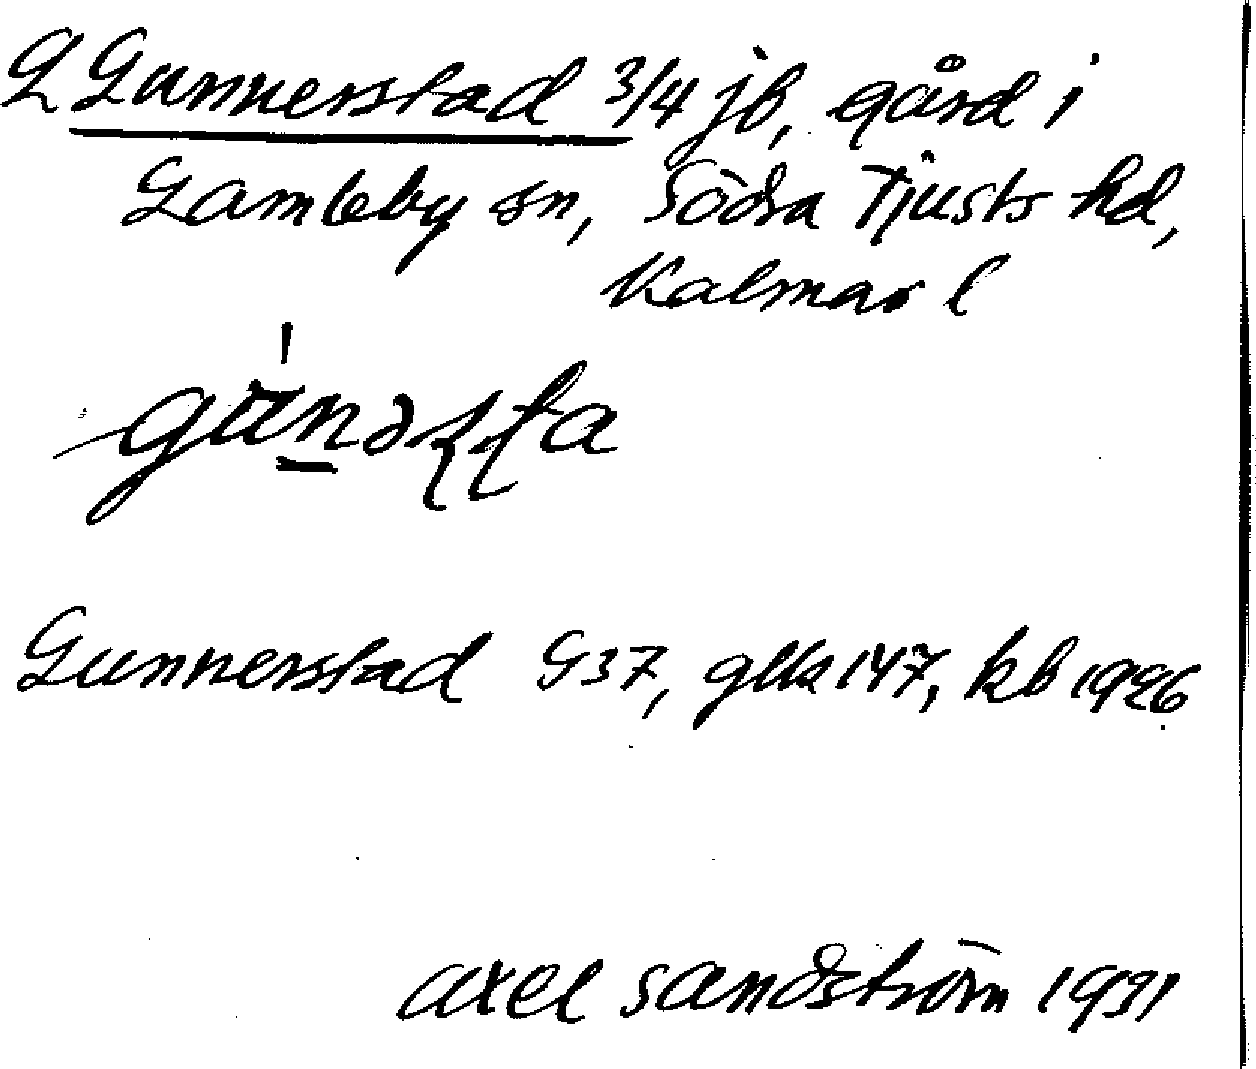 G Gunnerstad 3/4 jb, gård i
Gamleby sn, Södra Tjusts hd,
Kalmar l
Gunnerstad G37, gllk 147, kb 1926
axel sandström 1931